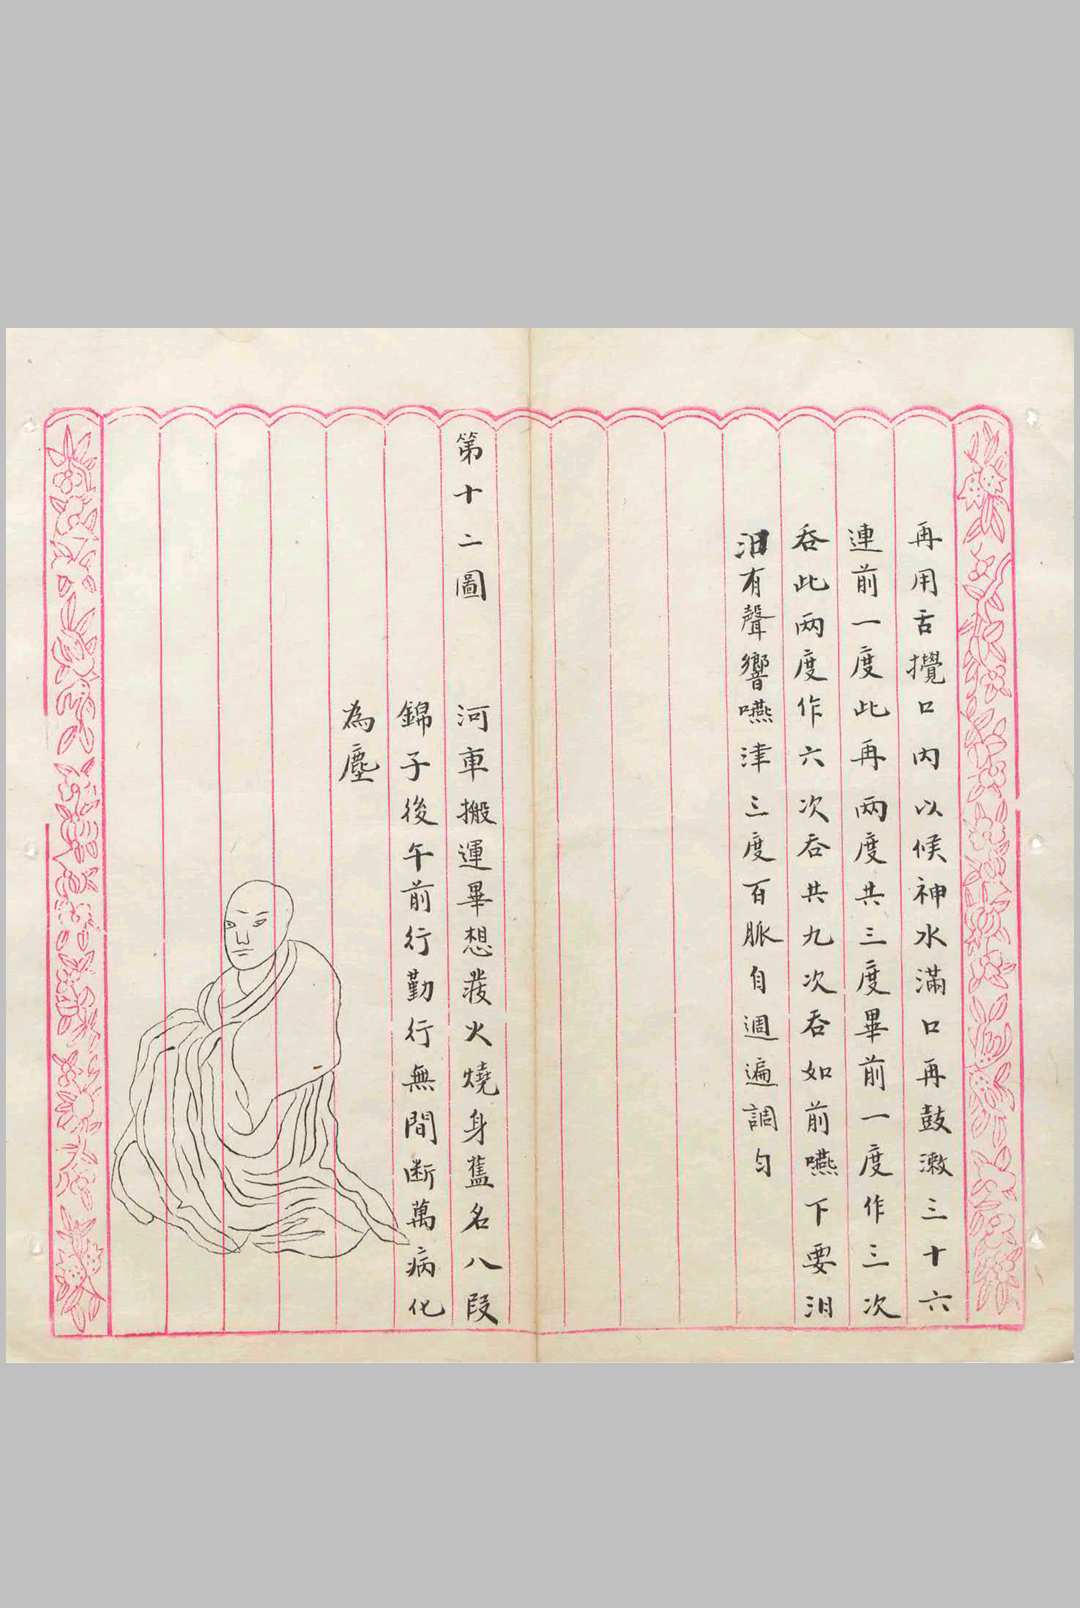 再用舌攪口内以候神水滿口再鼓漱三十六
連前一度此再兩度共三度畢前一度作三次
吞此兩度作六次吞共九次吞如前嚥下要汩
汩有聲響嚥津三度百脈自週遍調勻
第十二圖
河車搬運畢想發火燒身舊名八段
錦子後午前行勤行無間断萬病化
為塵